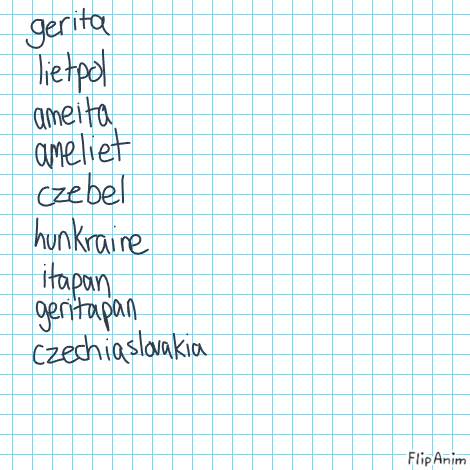 gerita
lietpol
ameita
ameliet
czebel
hunkraine
itapan
geritapan
czechiaslovakia
FlipAnim